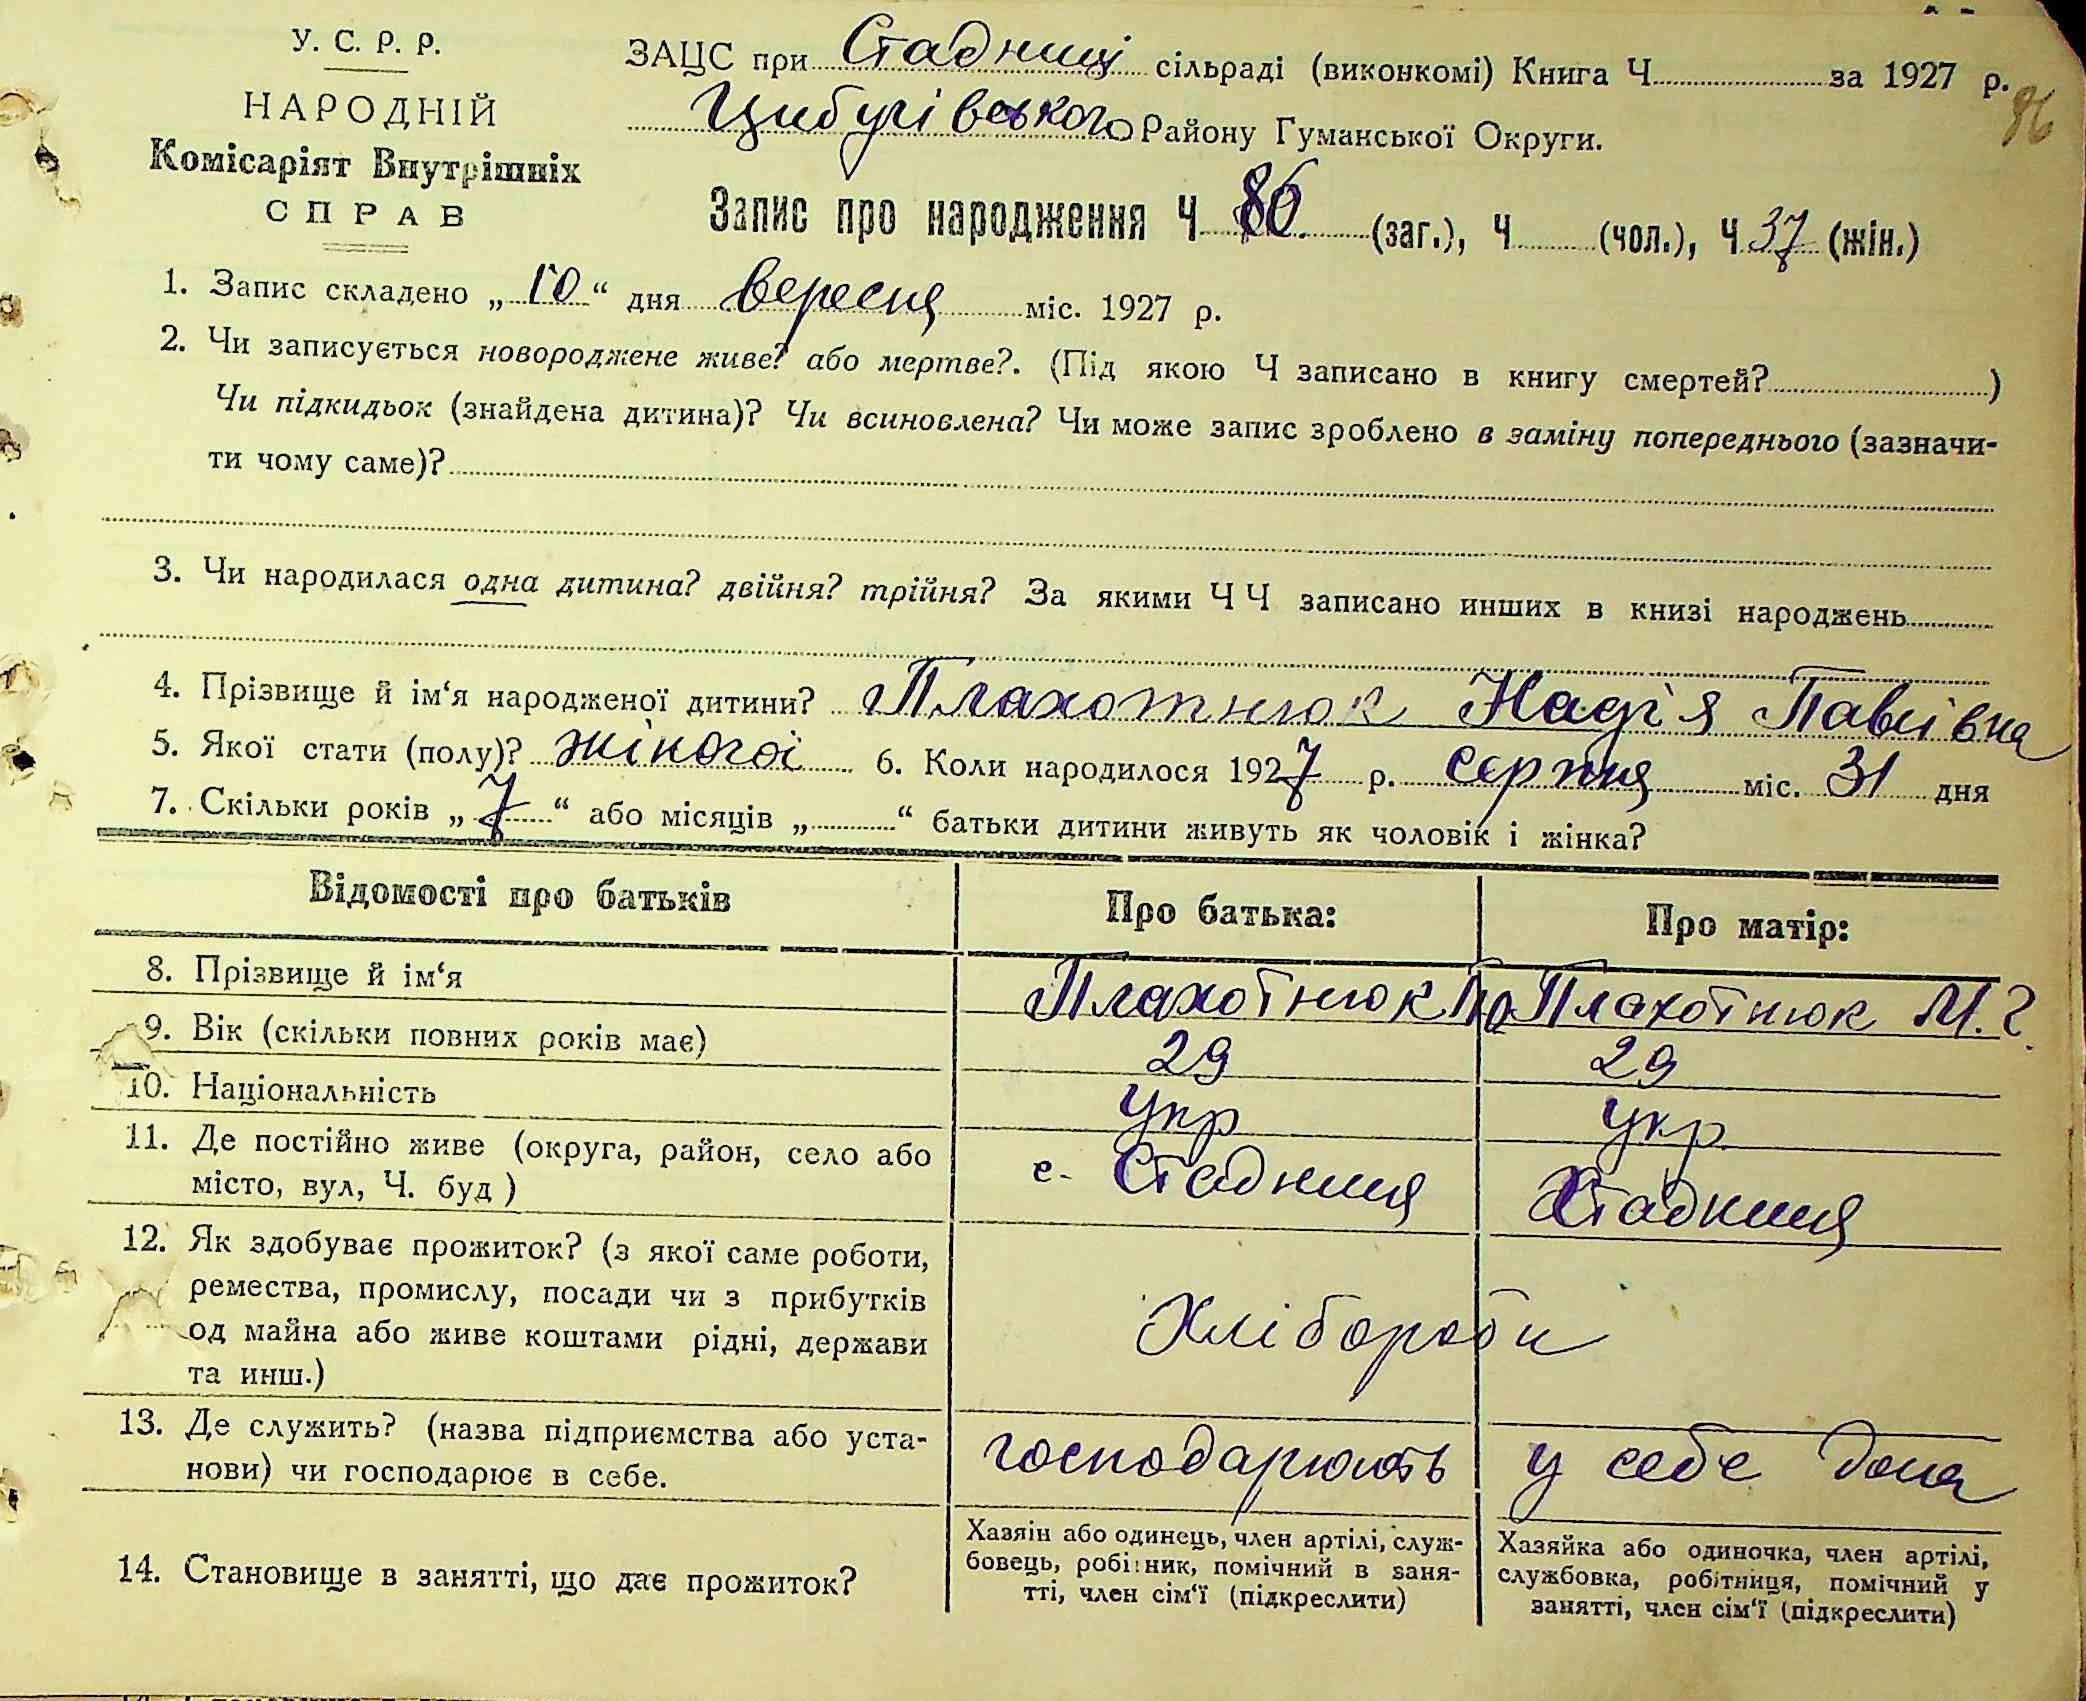 У. С. Р. Р.
НАРОДНІЙ
Комісаріят Внутрішніх
СПРАВ
ЗАЦС при Стадниці сільраді (виконкомі) Книга Ч за 1927 р.
96
Цибулівського Району Гуманської Округи.
Запис про народження Ч 86 (заг.), Ч (чол.), Ч 37 (жін.)
1. Запис складено „10“ дня вересня міс. 1927 р.
2. Чи записується новороджене живе? або мертве?. (Під якою Ч записано в книгу смертей? )
Чи підкидьок (знайдена дитина)? Чи всиновлена? Чи може запис зроблено в заміну попереднього (зазначи-
ти чому саме)?
3. Чи народилася одна дитина? двійня? трійня? За якими ЧЧ записано инших в книзі народжень
4. Прізвище й ім‘я народженої дитини? Плахотнюк Надія Павлівна
5. Якої стати (полу)? жіночої 6. Коли народилося 1927 р. серпня міс. 31 дня
7. Скільки років „7“ або місяців „ “ батьки дитини живуть як чоловік і жінка?
Відомості про батьків Про батька: Про матір:
8. Прізвище й ім‘я Плахотнюк Плахотнюк М.
9. Вік (скільки повних років має) 29 29
10. Національність укр укр
11. Де постійно живе (округа, район, село або
місто, вул, Ч. буд ) с. Стадниця Стадниця
12. Як здобуває прожиток? (з якої саме роботи,
ремества, промислу, посади чи з прибутків
од майна або живе коштами рідні, держави
та инш.) Хлібороби
13. Де служить? (назва підприємства або уста-
нови) чи господарює в себе. господарюють у себе дома
14. Становище в занятті, що дає прожиток?
Хазяін або одинець, член артілі, служ-
бовець, робітник, помічний в заня-
тті, член сім‘ї (підкреслити)
Хазяйка або одиночка, член артілі,
службовка, робітниця, помічний у
занятті, член сім‘ї (підкреслити)